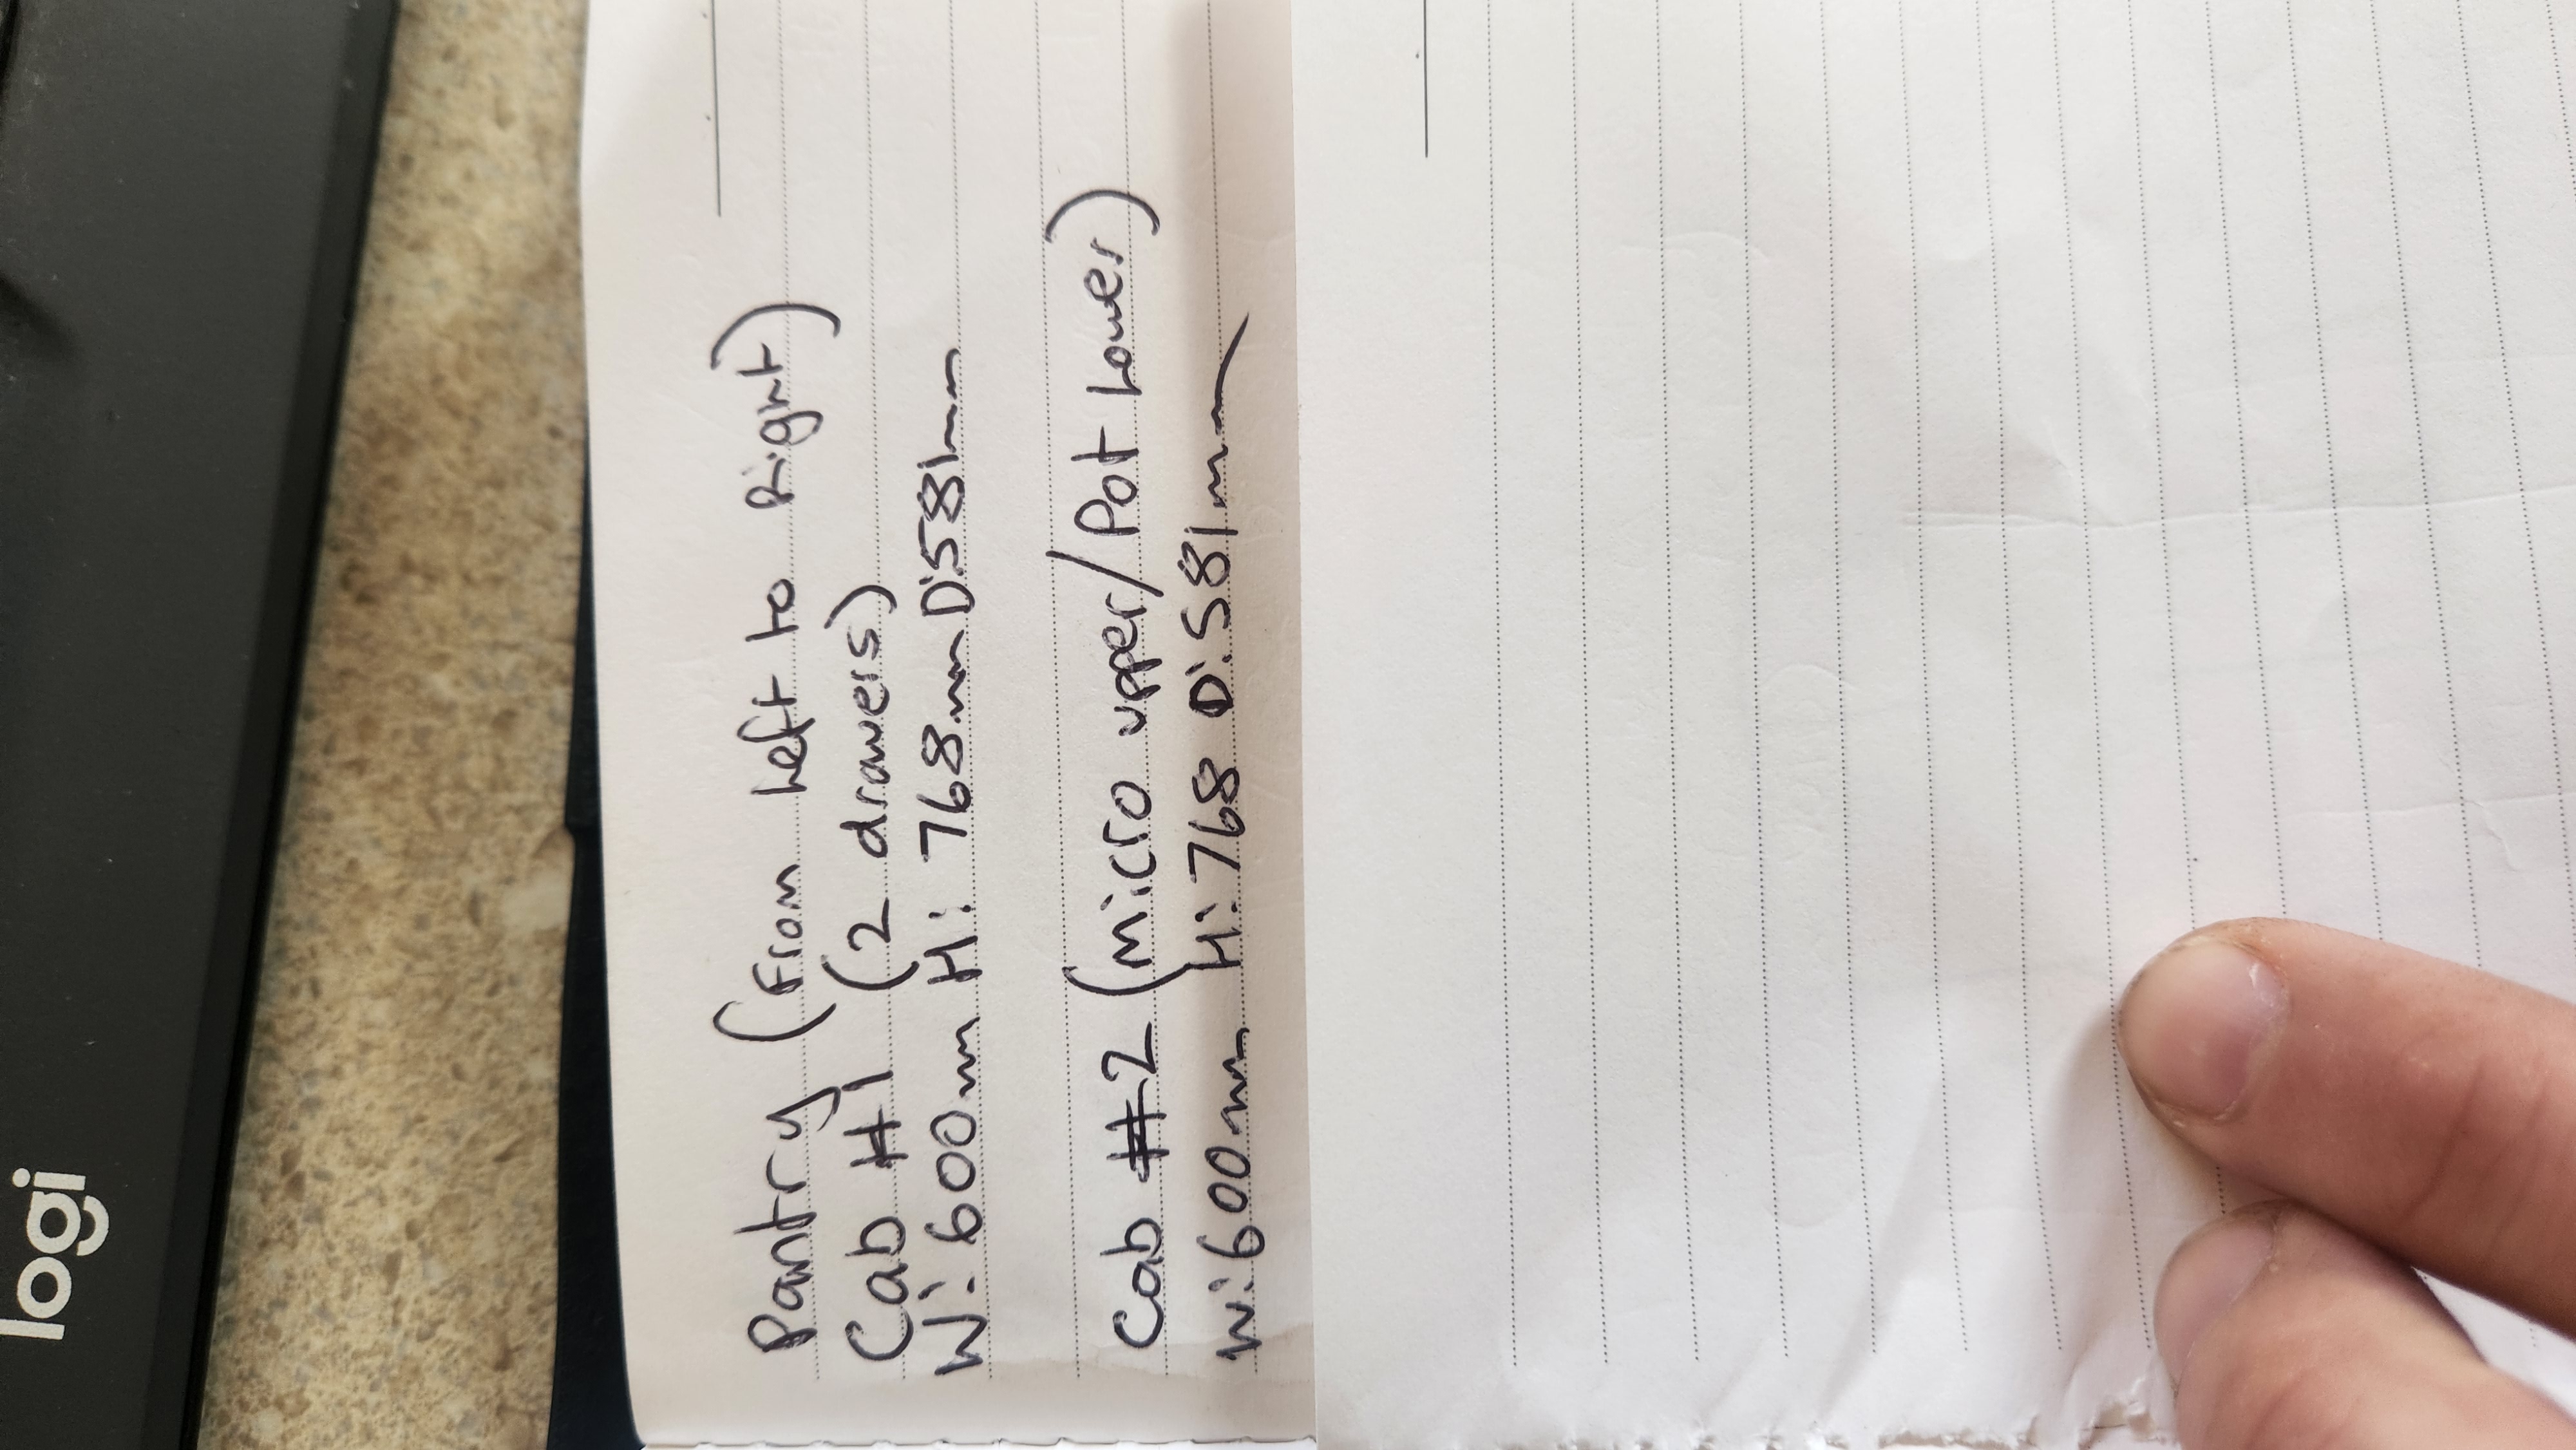 logi
Pantry (From Left to Right)
Cab #1 (2 drawers)
W: 600mm H: 768mm D:581mm
Cab #2 (micro upper/Pot Lower)
W:600mm H:768 D:581mm